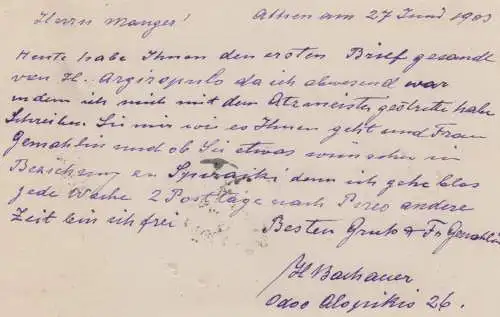 Herrn Manges! Athen am 27 Juni 1903
Heute habe Ihnen den ersten Brief gesandt
von H. Argiropulo da ich abwesend war
indem ich mich mit dem
Schreiben Sie mir wie es Ihnen geht und Frau
Gemahlin und ob Sie etwas wünschen in
Beziehung an denn ich gehe blos
jede Woche 2 Posttage nach Pireo andere
Zeit bin ich frei Besten Gruß & Fr Gemahlin
H Bachauer
Odos 26.